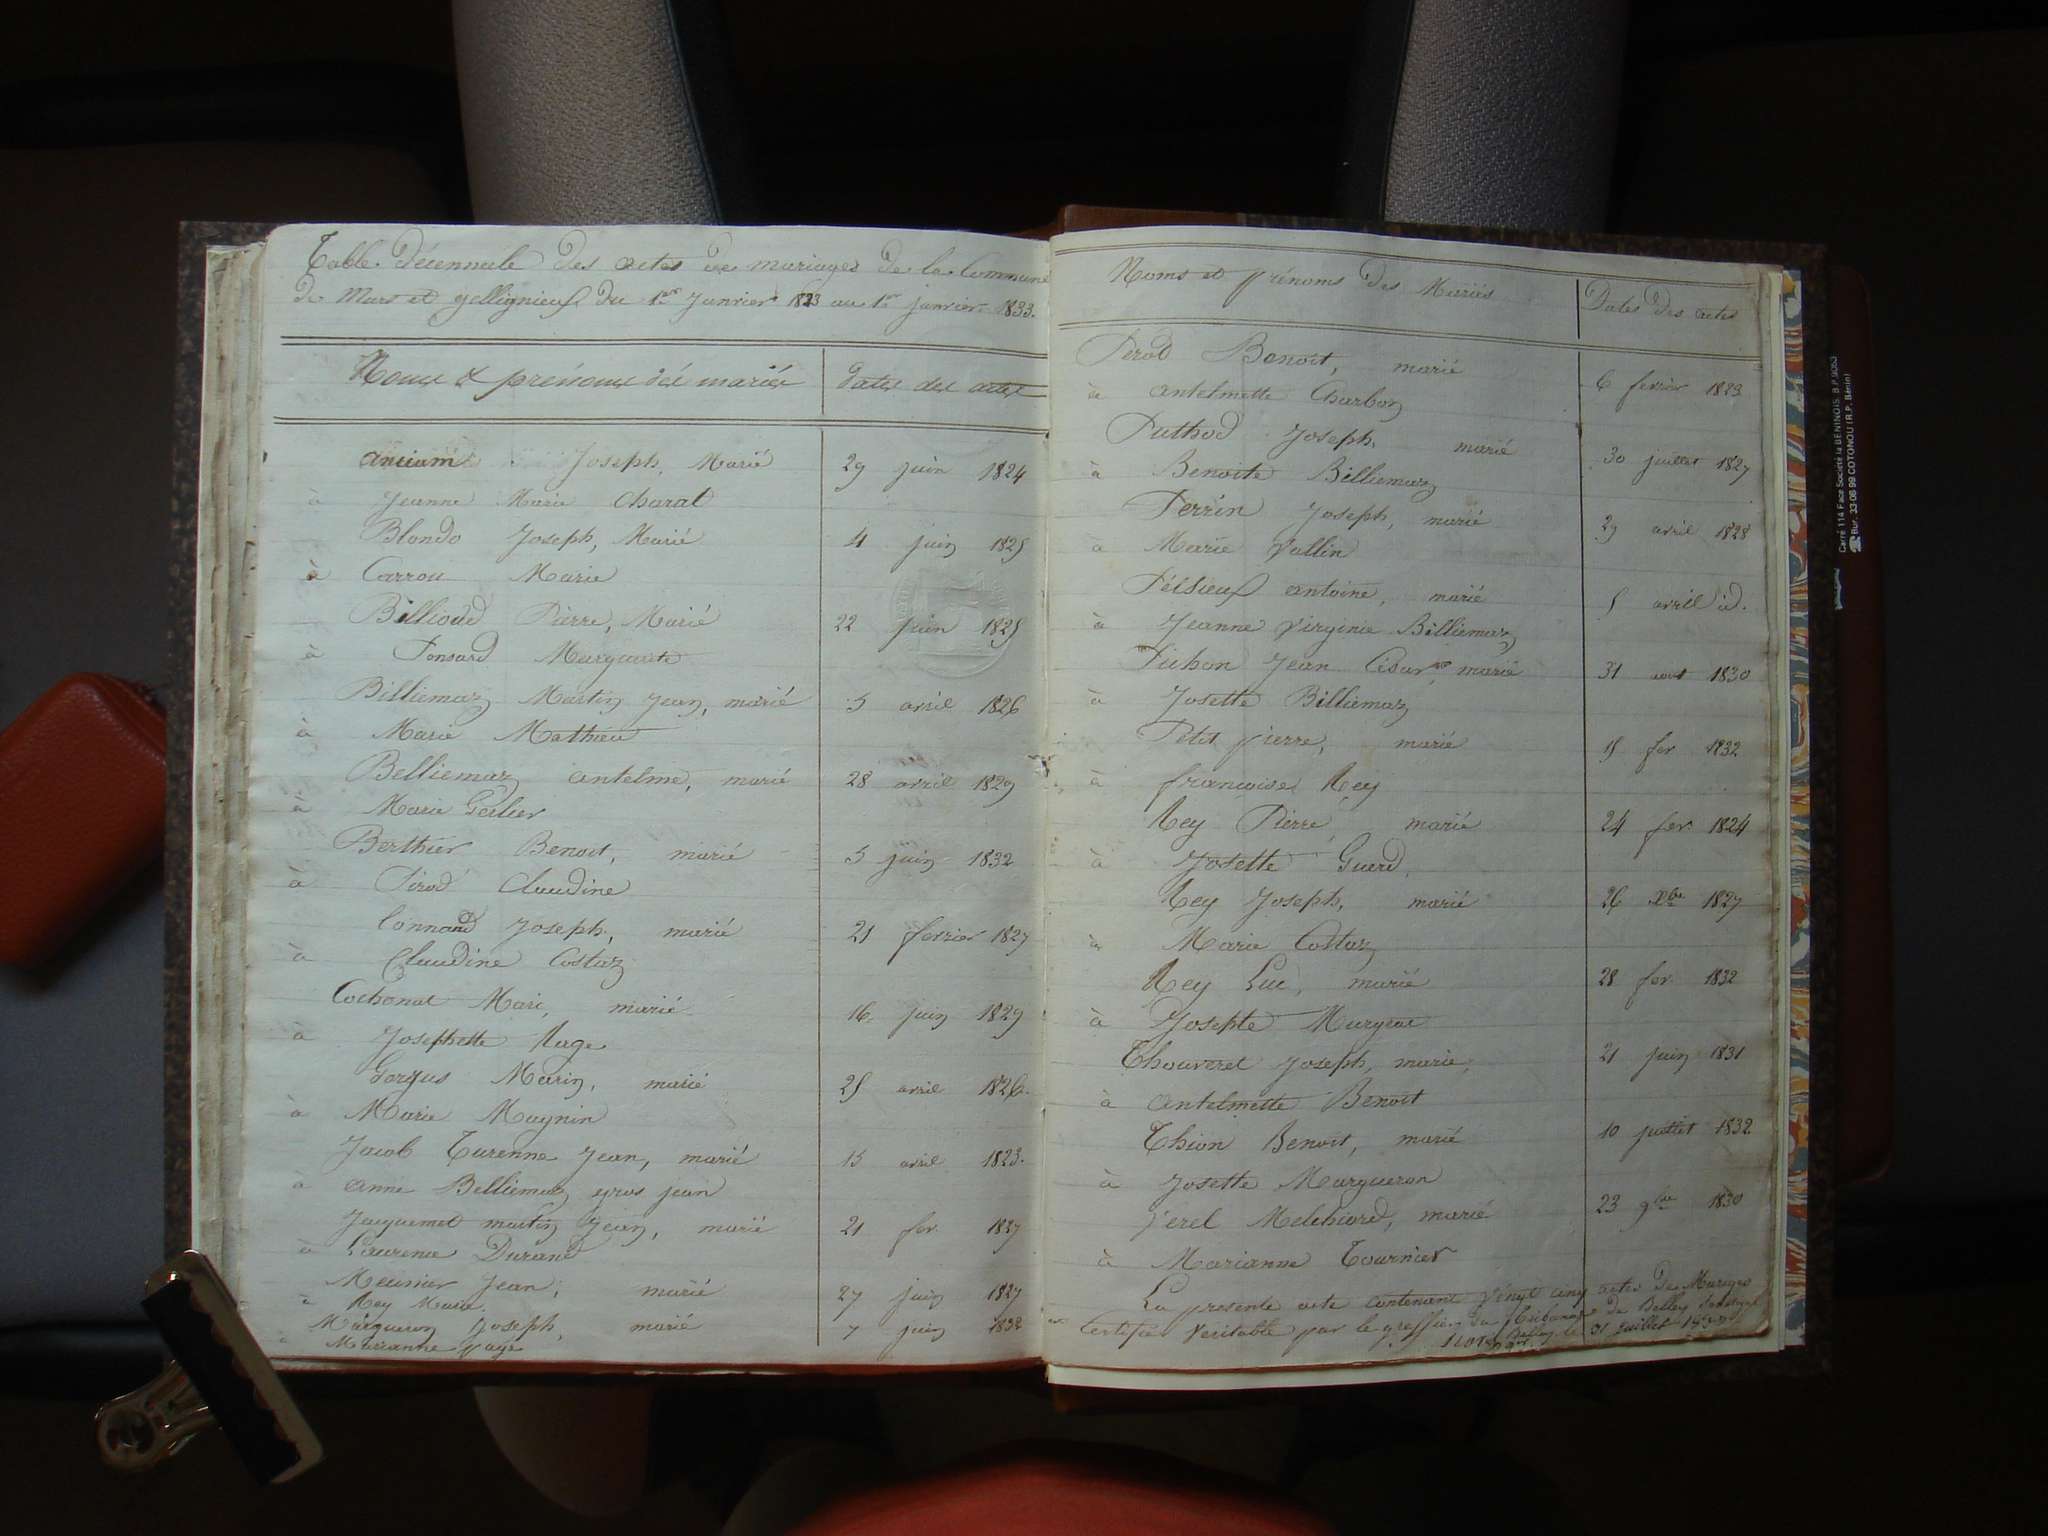 Table décennale des actes de mariages de la Commune
de Murs et gellignieux du 1er Janvier 1823 au 1er janvier 1833.
Noms & prénoms des mariés
dates des actes
anciam Joseph, Marié
29 juin 1824
à Jeanne Marie Charat
Blondo Joseph, Marié
4 juin 1825
à Carrou Marie
Billioud Pierre, Marié
22 juin 1825
à Ponsard Marguerite
Billiemaz Martin Jean, marié
5 avril 1826
à Marie Mathieu
Belliemaz antelme, marié
28 avril 1829
à Marie Gerlier
Berthier Benoit, marié
5 juin 1832
à Pirod Claudine
Connand Joseph, marié
21 fevrier 1827
à Claudine Costaz
Cochonat Marc, marié
16 juin 1829
à Josephette Rage
Gorgus Marin, marié
25 avril 1826.
à Marie Magnin
Jacob Turenne Jean, marié
15 avril 1823.
à anne Belliemaz gros jean
Jacquemet martin Jean, marié
21 fer 1827
à Laurence Durand
Meunier Jean, marié
27 juin 1827
à Rey Marie.
Margueron Joseph, marié
7 juin 1832
à Marianne page
Noms et prénoms des Mariés
Dates des actes
Perod Benoit, marié
6 fevrier 1823
à antelmette Charbon
Puthod Joseph, marié
30 juillet 1827
à Benoite Billiemaz
Perrin Joseph, marié
29 avril 1828
à Marie Vallin
Pélsieux antoine, marié
5 avril id.
à Jeanne Virginie Billiemaz
Pichon Jean César, marié
31 aout 1830
à Josette Billiemaz
Petit pierre, marié
15 fer 1832
à francoise Rey
Rey Pierre, marié
24 fer 1824
à Josette Guerd
Rey Joseph, marié
26 Xbre 1827
à Marie Costaz
Rey Luc, marié
28 fer 1832
à Josepte Murgeat
Thouveret Joseph, marié,
21 juin 1831
à antelmette Benoit
Thion Benoit, marié
10 juillet 1832
à Josette Margueron
jerel Melchiord, marié
23 9bre 1830
à Marianne Tournier
La presente acte contenant vingt cinq actes de Mariages
Certifiée Veritable par le greffier du tribunal de Belley
Belley le 31 juillet
Carré 114 Face Société la BENINOIS. B.P.9053
☎Bur. 33-06 99 COTONOU (R.P. Bénin)